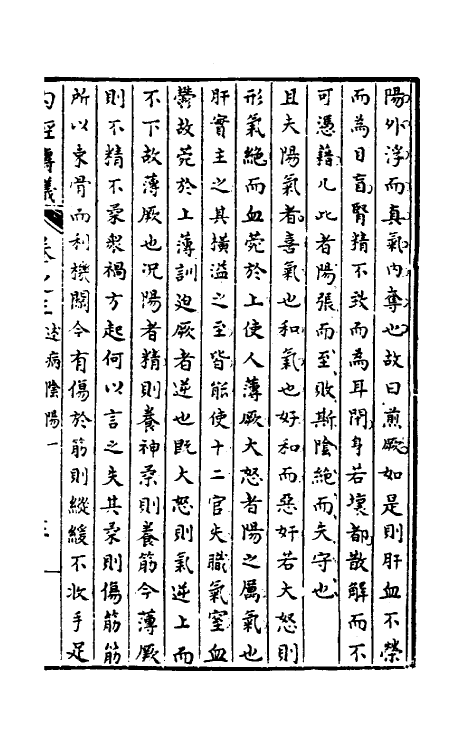 陽外浮而真氣內奪也故曰煎厥如是則肝血不榮
而為目盲腎精不致而為耳閉身若壞都散解而不
可憑藉凡此者陽張而至敗斯陰絕而失守也
且夫陽氣者喜氣也和氣也好和而惡奸若大怒則
形氣絕而血菀於上使人薄厥大怒者陽之厲氣也
肝實主之其橫溢之至皆能使十二官失職氣窒血
鬱故菀於上薄訓迫厥者逆也既大怒則氣逆上而
不下故薄厥也況陽者精則養神柔則養筋今薄厥
則不精不柔衆禍方起何以言之失其柔則傷筋筋
所以束骨而利機關今有傷於筋則縱緩不收手足
內經博議 卷之三 述病陰陽一 三